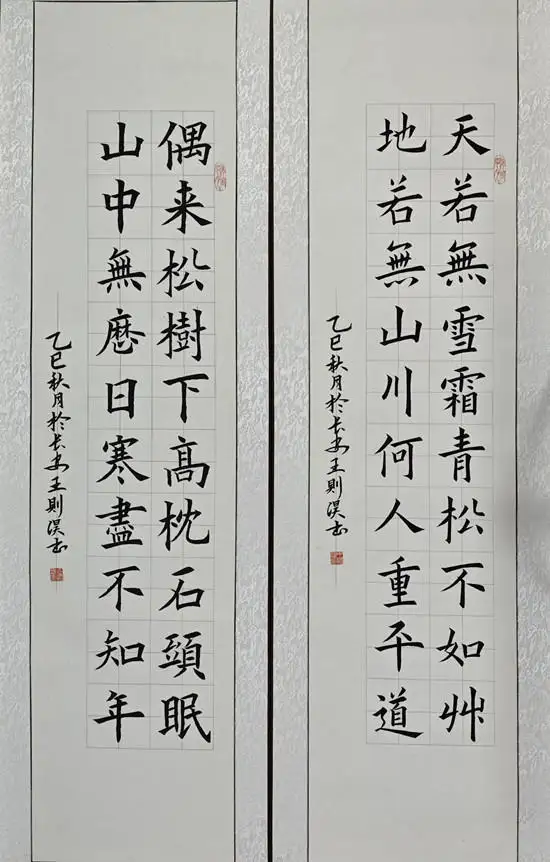 天若無雪霜青松不如艸
地若無山川何人重平道
乙巳秋月於長安王則淏书
偶来松樹下髙枕石頭眠
山中無曆日寒盡不知年
乙巳秋月於長安王則淏书